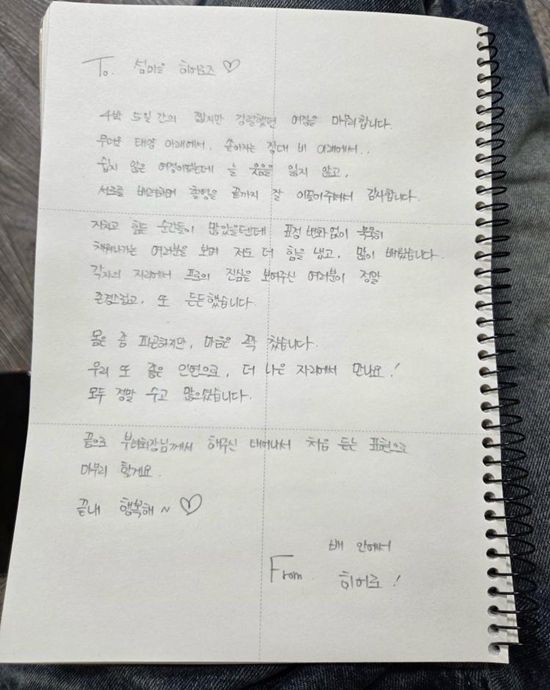 To. 섬마을 히어로즈 ♡
4박 5일 간의 짧지만 강렬했던 여정을 마무리합니다.
무더운 태양 아래에서, 쏟아지는 장대 비 아래에서..
쉽지 않은 여정이었는데 늘 웃음을 잃지 않고,
서로를 배려하며 촬영을 끝까지 잘 이끌어주셔서 감사합니다.
지치고 힘든 순간들이 많았을텐데 표정 변화 없이 묵묵히
해나가는 여러분을 보며 저도 더 힘을 냈고, 많이 배웠습니다.
각자의 자리에서 프로의 진심을 보여주신 여러분이 정말
존경스럽고, 또 든든했습니다.
몸은 좀 피곤하지만, 마음은 꽉 찼습니다.
우리 또 좋은 인연으로, 더 나은 자리에서 만나요!
모두 정말 수고 많으셨습니다.
끝으로 부녀회장님께서 해주신 태어나서 처음 듣는 표현으로
마무리 할게요.
끝내 행복해~ ♡
배 안에서
From. 히어로!